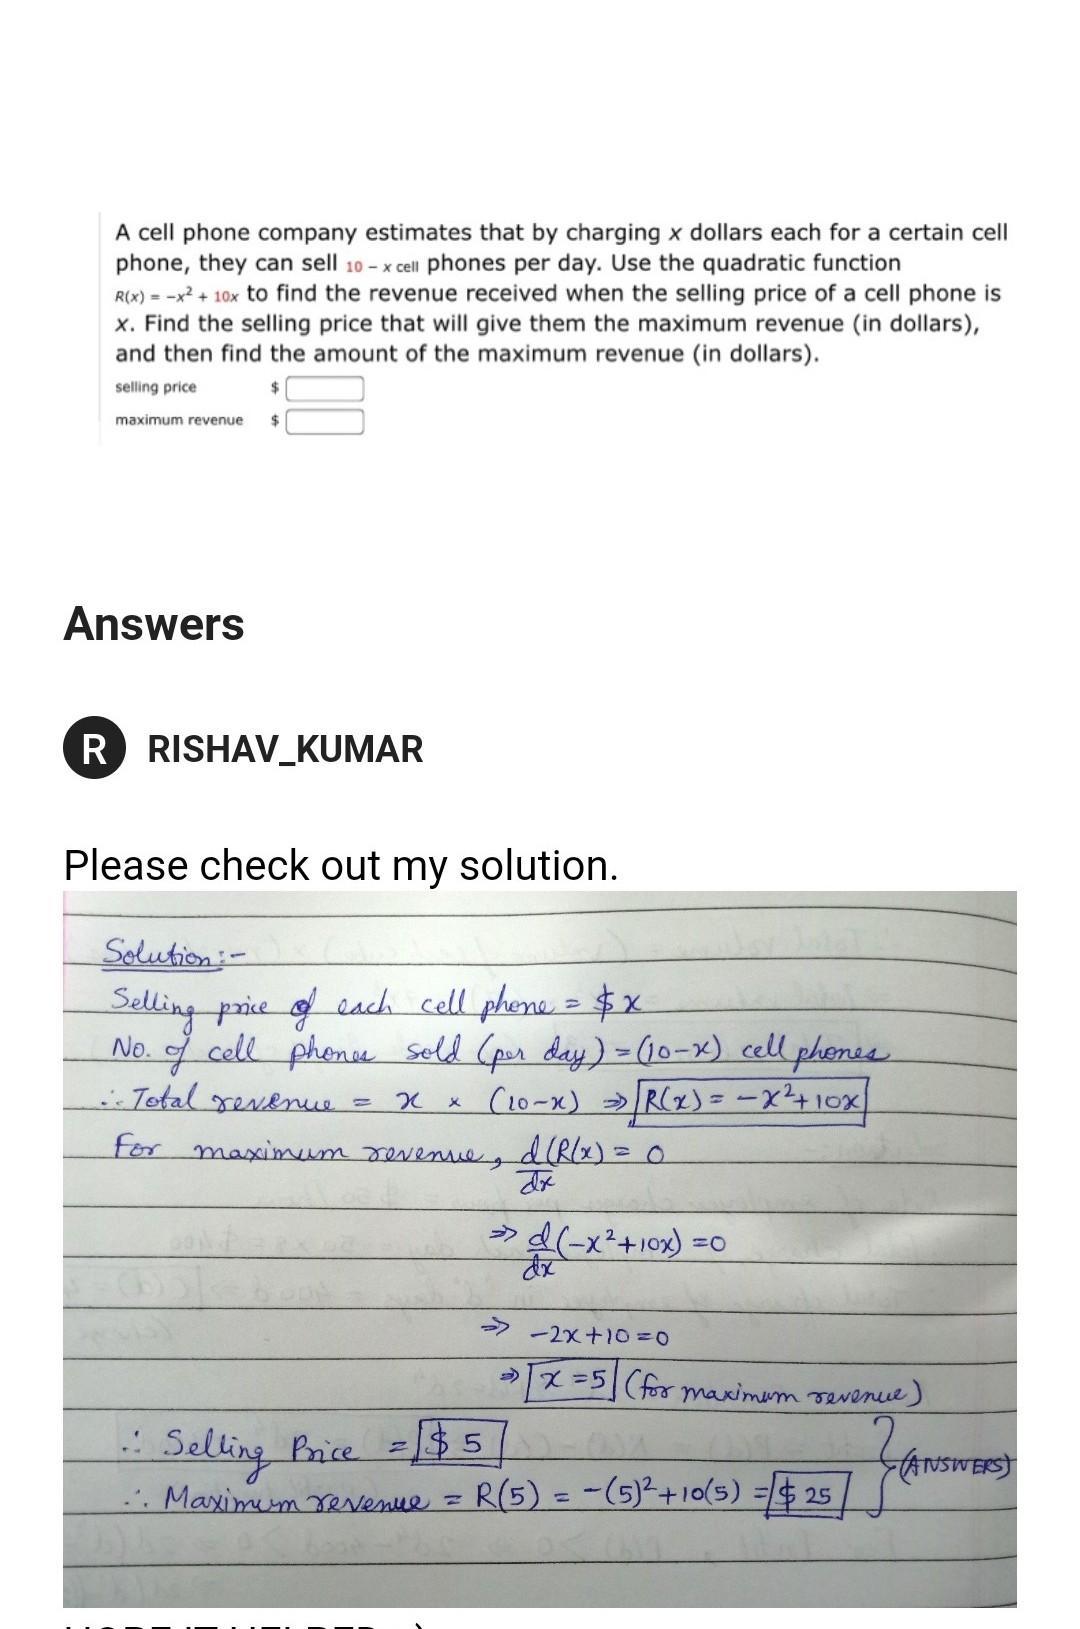 A cell phone company estimates that by charging x dollars each for a certain cell
phone, they can sell 10 - x cell phones per day. Use the quadratic function
R(x) = -x² + 10x to find the revenue received when the selling price of a cell phone is
x. Find the selling price that will give them the maximum revenue (in dollars),
and then find the amount of the maximum revenue (in dollars).
selling price $
maximum revenue $
Answers
R RISHAV_KUMAR
Please check out my solution.
Solution :-
Selling price of each cell phone = $ x
No. of cell phones sold (per day) = (10-x) cell phones
∴ Total revenue = x × (10-x) ⇒ R(x) = -x²+10x
For maximum revenue, d(R(x) = 0
dx
⇒ d(-x²+10x) =0
dx
⇒ -2x+10=0
⇒ x=5 (for maximum revenue)
∴ Selling Price = $ 5
∴ Maximum revenue = R(5) = -(5)²+10(5) = $ 25 (ANSWERS)